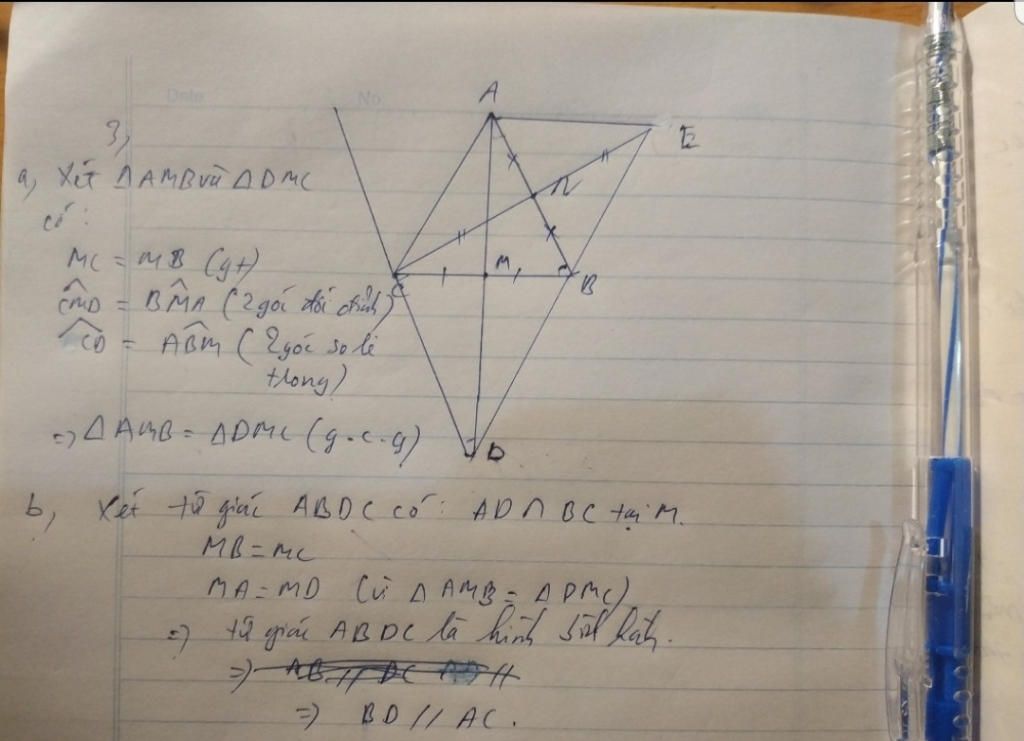 Date
No.
3,
a, Xét △AMB và △DMC
có:
MC = MB (gt)
CM̂D = BM̂A (2 góc đối đỉnh)
ĈD = AB̂M (2 góc so le
trong)
=> △AMB = △DMC (g.c.g)
A
E
N
M
C
B
D
b, Xét tứ giác ABDC có: AD ∩ BC tại M.
MB = MC
MA = MD (vì △AMB = △DMC)
=> tứ giác ABDC là hình bình hành.
=> AB // DC //
=> BD // AC.